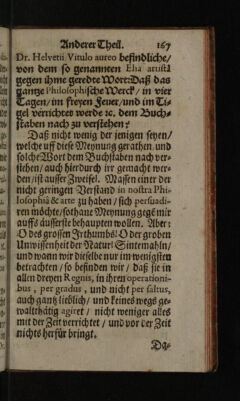 Anderer Theil. 167
Dr. Helvetii Vitulo aureo befindliche/
von dem so genannten Elia artistâ
gegen ihme geredte Wort: Daß das
gantze Philosophische Werck / in vier
Tagen / im freyen Feuer / und im Ti-
gel verrichtet werde ꝛc. dem Buch-
staben nach zu verstehen?
Daß nicht wenig der jenigen seyen /
welche uff diese Meynung gerathen, und
solche Wort dem Buchstaben nach ver-
stehen / auch hierdurch irr gemacht wer-
den / ist ausser Zweifel. Massen einer der
nicht geringen Verstand in nostra Phi-
losophiâ & arte zu haben / sich persuadi-
ren möchte / sothane Meynung gegẽ mir
auffs äusserste behaupten wollen. Aber:
O des grossen Irthumbs! O der groben
Unwissenheit der Natur! Sintemahln /
und wann wir dieselbe nur im wenigsten
betrachten / so befinden wir / daß sie in
allen dreyen Regnis, in ihren operationi-
bus, per gradus, und nicht per saltus,
auch gantz lieblich / und keines wegs ge-
waltthätig agiret / nicht weniger alles
mit der Zeit verrichtet / und vor der Zeit
nichts herfür bringt.
Da-